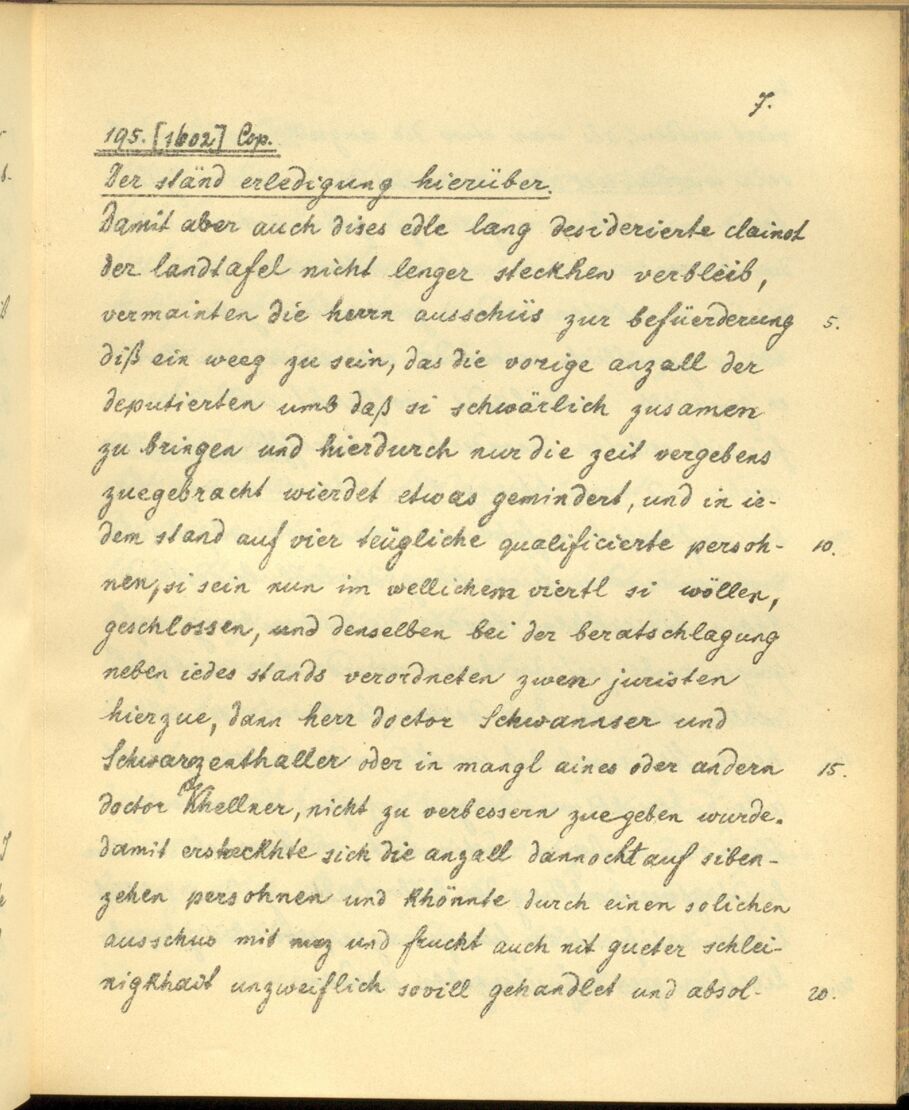 7.
195. [1602] Cop.
Der ständ erledigung hierüber.
Damit aber auch dises edle lang desiderierte clainot
der landtafel nicht lenger steckhen verbleib,
vermainten die herrn ausschüs zur befüerderung 5.
diß ein weeg zu sein, das die vorige anzall der
deputierten umb daß si schwärlich zusamen
zu bringen und hierdurch nur die zeit vergebens
zuegebracht wierdet etwas gemindert, und in ie-
dem stand auf vier teügliche qualificierte persoh- 10.
nen, si sein nun im wellichem viertl si wöllen,
geschlossen, und denselben bei der beratschlagung
neben iedes stands verordneten zwen juristen
hierzue, dann herr doctor Schwannser und
Schwarzenthaller oder in mangl aines oder andern 15.
doctor Khellner, nicht zu verbessern zuegeben wurde.
damit ersteckhte sich die anzall dannocht auf siben-
zehen persohnen und khönnte durch einen solichen
ausschus mit nuz und frucht auch mit gueter schlei-
nigkhait unzweiflich sovill gehandlet und absol- 20.